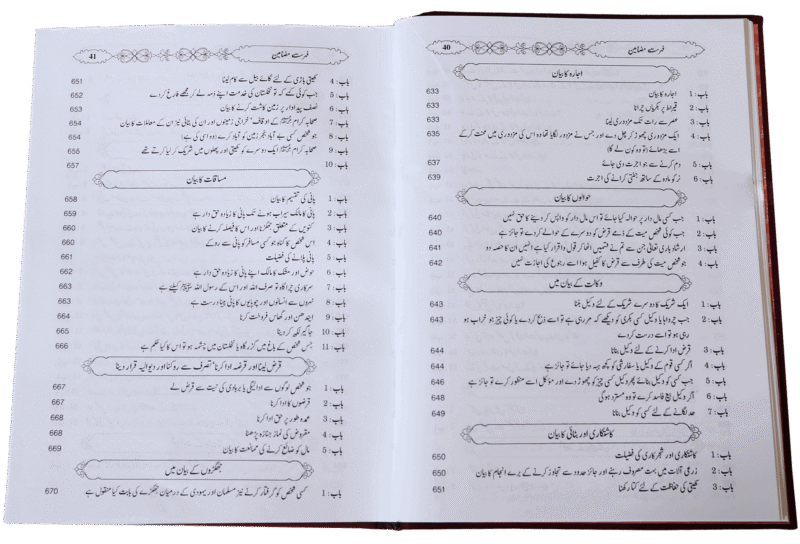 40
فہرست مضامین
اجارہ کا بیان
باب: 1 اجارہ کا بیان 633
باب: 2 قیراط پر بکریاں چرانا 633
باب: 3 عصر سے رات تک مزدوری لینا 633
باب: 4 ایک مزدوری چھوڑ کر چل دے اور جس نے مزدور لگایا تھا وہ اس کی مزدوری میں محنت کر کے
اسے بڑھائے (تو وہ کون لے گا) 635
باب: 5 دم کرنے سے جو اجرت دی جائے 637
باب: 6 نر کو مادہ کے ساتھ جفتی کرانے کی اجرت 639
حوالوں کا بیان
باب: 1 جب کسی مال دار پر حوالہ کیا جائے تو اس مال دار کو واپس کر دینے کا حق نہیں 640
باب: 2 جب کوئی شخص میت کے ذمے قرض کو دوسرے کے حوالے کر دے تو جائز ہے 640
باب: 3 ارشاد باری تعالیٰ جن سے تم نے قسمیں اٹھا کر قول واقرار کیا ہے انہیں ان کا حصہ دو 641
باب: 4 جو شخص میت کی طرف سے قرض کا کفیل ہو اسے رجوع کی اجازت نہیں 642
وکالت کے بیان میں
باب: 1 ایک شریک کا دوسرے شریک کے لئے وکیل بننا 643
باب: 2 جب چرواہا یا وکیل کسی بکری کو دیکھے کہ مر رہی ہے تو اسے ذبح کر دے یا کوئی چیز جو خراب ہو
رہی ہو تو اسے درست کر دے 643
باب: 3 قرض ادا کرنے کے لئے وکیل بنانا 644
باب: 4 اگر کسی قوم کے وکیل یا سفارشی کو کچھ ہبہ دیا جائے تو جائز ہے 644
باب: 5 جب کسی کو وکیل بنائے پھر وکیل کسی چیز کو چھوڑ دے اور مؤکل اسے منظور کرے تو جائز ہے 646
باب: 6 اگر وکیل بیع فاسد کرے تو وہ مسترد ہو گی 648
باب: 7 حد لگانے کے لئے کسی کو وکیل بنانا 649
کاشتکاری اور بٹائی کا بیان
باب: 1 کاشتکاری اور شجر کاری کی فضیلت 650
باب: 2 زرعی آلات میں بہت مصروف رہنے اور جائز حدود سے تجاوز کرنے کے برے انجام کا بیان 650
باب: 3 کھیتی کی حفاظت کے لئے کتا رکھنا 651
فہرست مضامین
41
باب: 4 کھیتی باڑی کے لئے گائے بیل سے کام لینا 651
باب: 5 جب کوئی کہے کہ تو نخلستان کی خدمت اپنے ذمہ لے کر مجھے فارغ کر دے 652
باب: 6 نصف پیداوار پر زمین کاشت کرنے کا بیان 653
باب: 7 صحابہ کرام کے اوقاف، خراجی زمینوں اور ان کی بٹائی نیز ان کے معاملات کا بیان 654
باب: 8 جو شخص کسی بے آباد بنجر زمین کو آباد کرے (وہ اسی کی ہے) 654
باب: 9 صحابہ کرام ایک دوسرے کو کھیتی اور پھلوں میں شریک کر لیا کرتے تھے 655
باب: 10 657
مساقات کا بیان
باب: 1 پانی کی تقسیم کا بیان 658
باب: 2 پانی کا مالک سیراب ہونے تک پانی کا زیادہ حق دار ہے 659
باب: 3 کنویں کے متعلق جھگڑنا اور اس کا فیصلہ کرنے کا بیان 660
باب: 4 اس شخص کا گناہ جو کسی مسافر کو پانی سے روکے 660
باب: 5 پانی پلانے کی فضیلت 661
باب: 6 حوض اور مشک کا مالک اپنے پانی کا زیادہ حق دار ہے 662
باب: 7 سرکاری چراگاہ تو صرف اللہ اور اس کے رسول اللہ ﷺ کیلئے ہے 663
باب: 8 نہروں سے انسانوں اور چوپایوں کا پانی پینا درست ہے 663
باب: 9 ایندھن اور گھاس فروخت کرنا 664
باب: 10 جاگیر لکھ کر دینا 665
باب: 11 جس شخص کے باغ میں گزرگاہ یا نخلستان میں چشمہ ہو تو اس کا کیا حکم ہے 666
قرض لینا اور قرضہ ادا کرنا' تصرف سے روکنا اور دیوالیہ قرار دینا
باب: 1 جو شخص لوگوں سے ادائیگی یا بربادی کی نیت سے قرض لے 667
باب: 2 قرضوں کا ادا کرنا 667
باب: 3 عمدہ طور پر حق ادا کرنا 668
باب: 4 مقروض کی نماز جنازہ پڑھنا 668
باب: 5 مال کو ضائع کرنے کی ممانعت کا بیان 669
جھگڑوں کے بیان میں
باب: 1 کسی شخص کو گرفتار کرنے نیز مسلمان اور یہودی کے درمیان جھگڑے کی بابت کیا منقول ہے 670